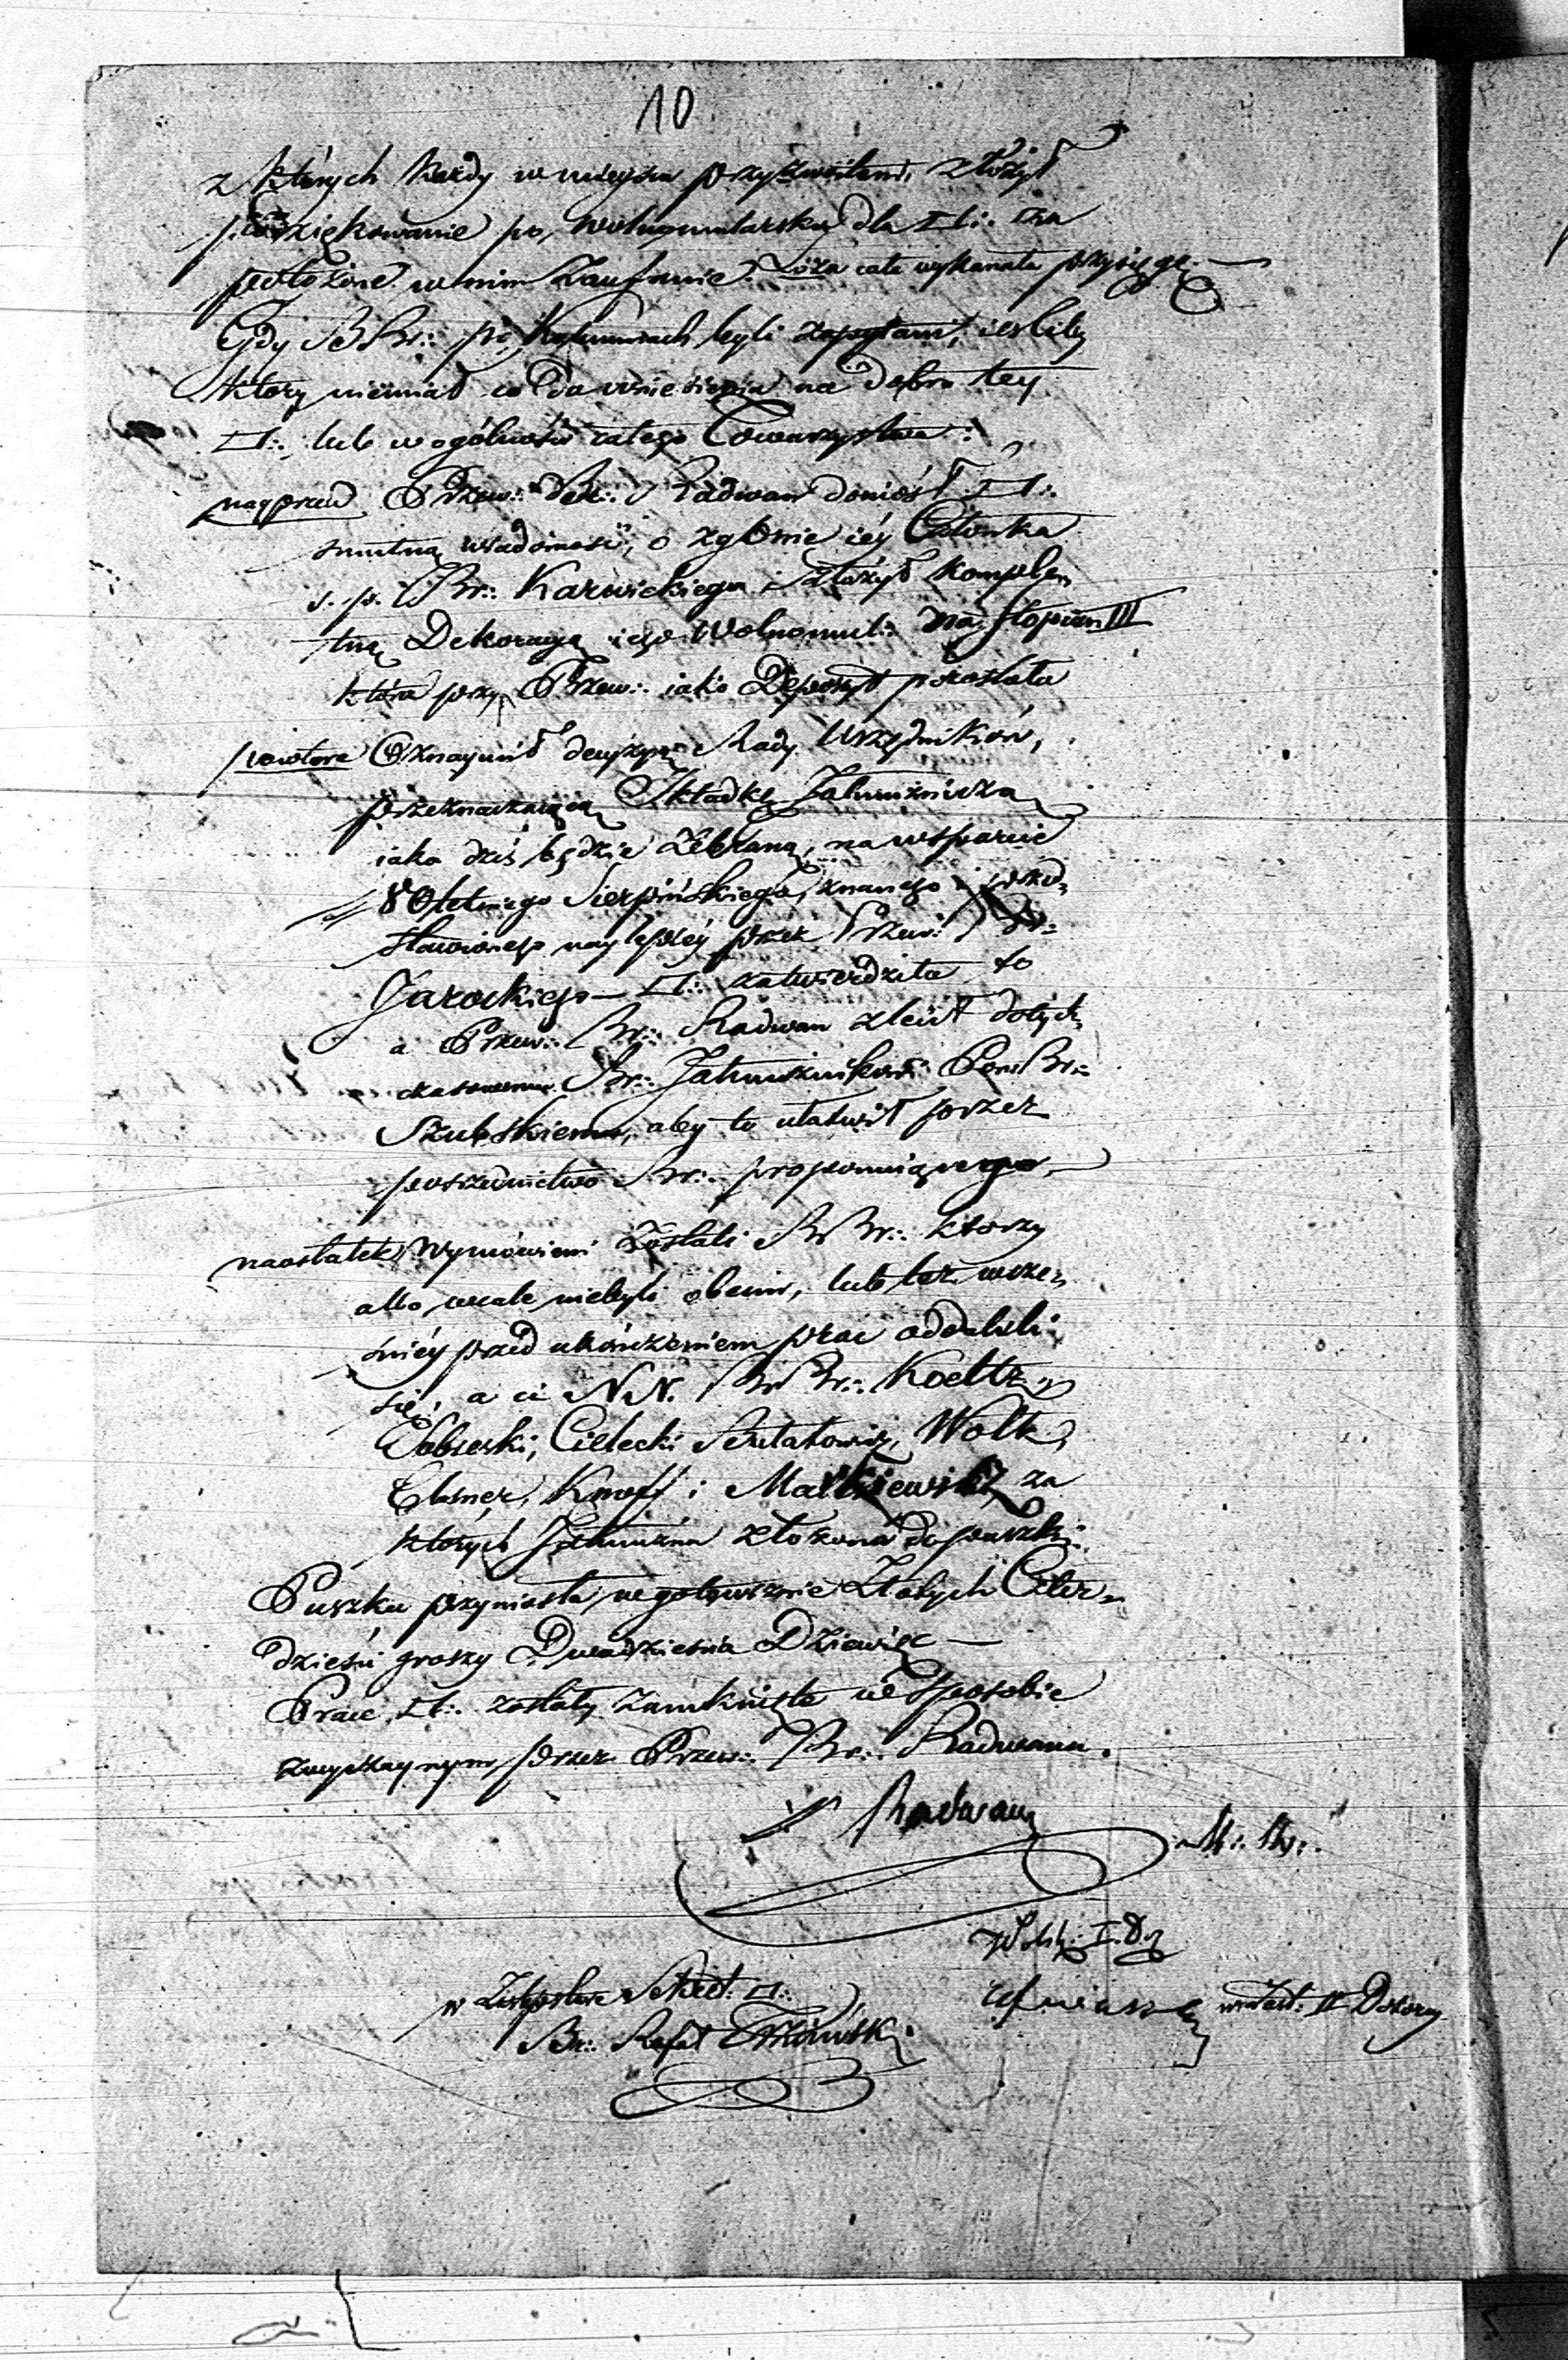 10
z których każdy w mieyscu przyzwoitem, złożył
podziękowanie po wolnomularsku dla □:. za
położone w nim Zaufanie. Loża cała wykonała przysięgę. —
Gdy BBr:. po Kolumnach byli zapytani, iesliby
ktory niemiał co do wniesienia na dobro tey
□:. lub w ogólności całego Towarzystwa:
naprzód Przew:. Br:. Radwan doniósł □:.
smutną wiadomość, o zgonie iéy Członka
ś. p. Br:. Karwickiego i złożył komple„
tną Dekoracyą iego Wolnomul:. na stopień III
która przy Przew:. iako Depozyt pozostała
powtore Oznaymił decyzyą Rady Urzędników,
przeznaczaiącą Składkę Jałmużniczą
iaka dziś będzie Zebraną, na wsparcie
80letniego Sierpińskiego, znanego i
stawionego naylepiéy przez Przew:. Br:.
Jarockiego — □:. zatwierdziła to
a Przew:. Br:. Radwan zlecił dotych„
czasowemu Br:. Jałmużnikowi Pow Br:.
Szubskiemu, aby to ułatwił przez
poszednictwo Br:. proponuiącego —
naostatek Wymówieni Zostali BBr:. którzy
albo wcale niebyli obecni, lub też wcze„
śniéy przed ukończeniem prac oddalili
się, a ci NN. BBr:. Koeltz,
Cielecki Wolk,
Elsner, Knoff i za
których Jałmużna złożona do puszki.
Puszka przyniosła w gotowiznie Złotych Czter„
dzieści groszy Dwadzieścia Dziewięc —
Prace □:. zostały zamknięte w Sposobie
zwyczaynym przez Przew:. Br:. Radwana.
Radwan
M:. K:.
I. D.
w Zastępstwie Sekret. □:.
w zast: II Dozorcy
Br:. Rafał